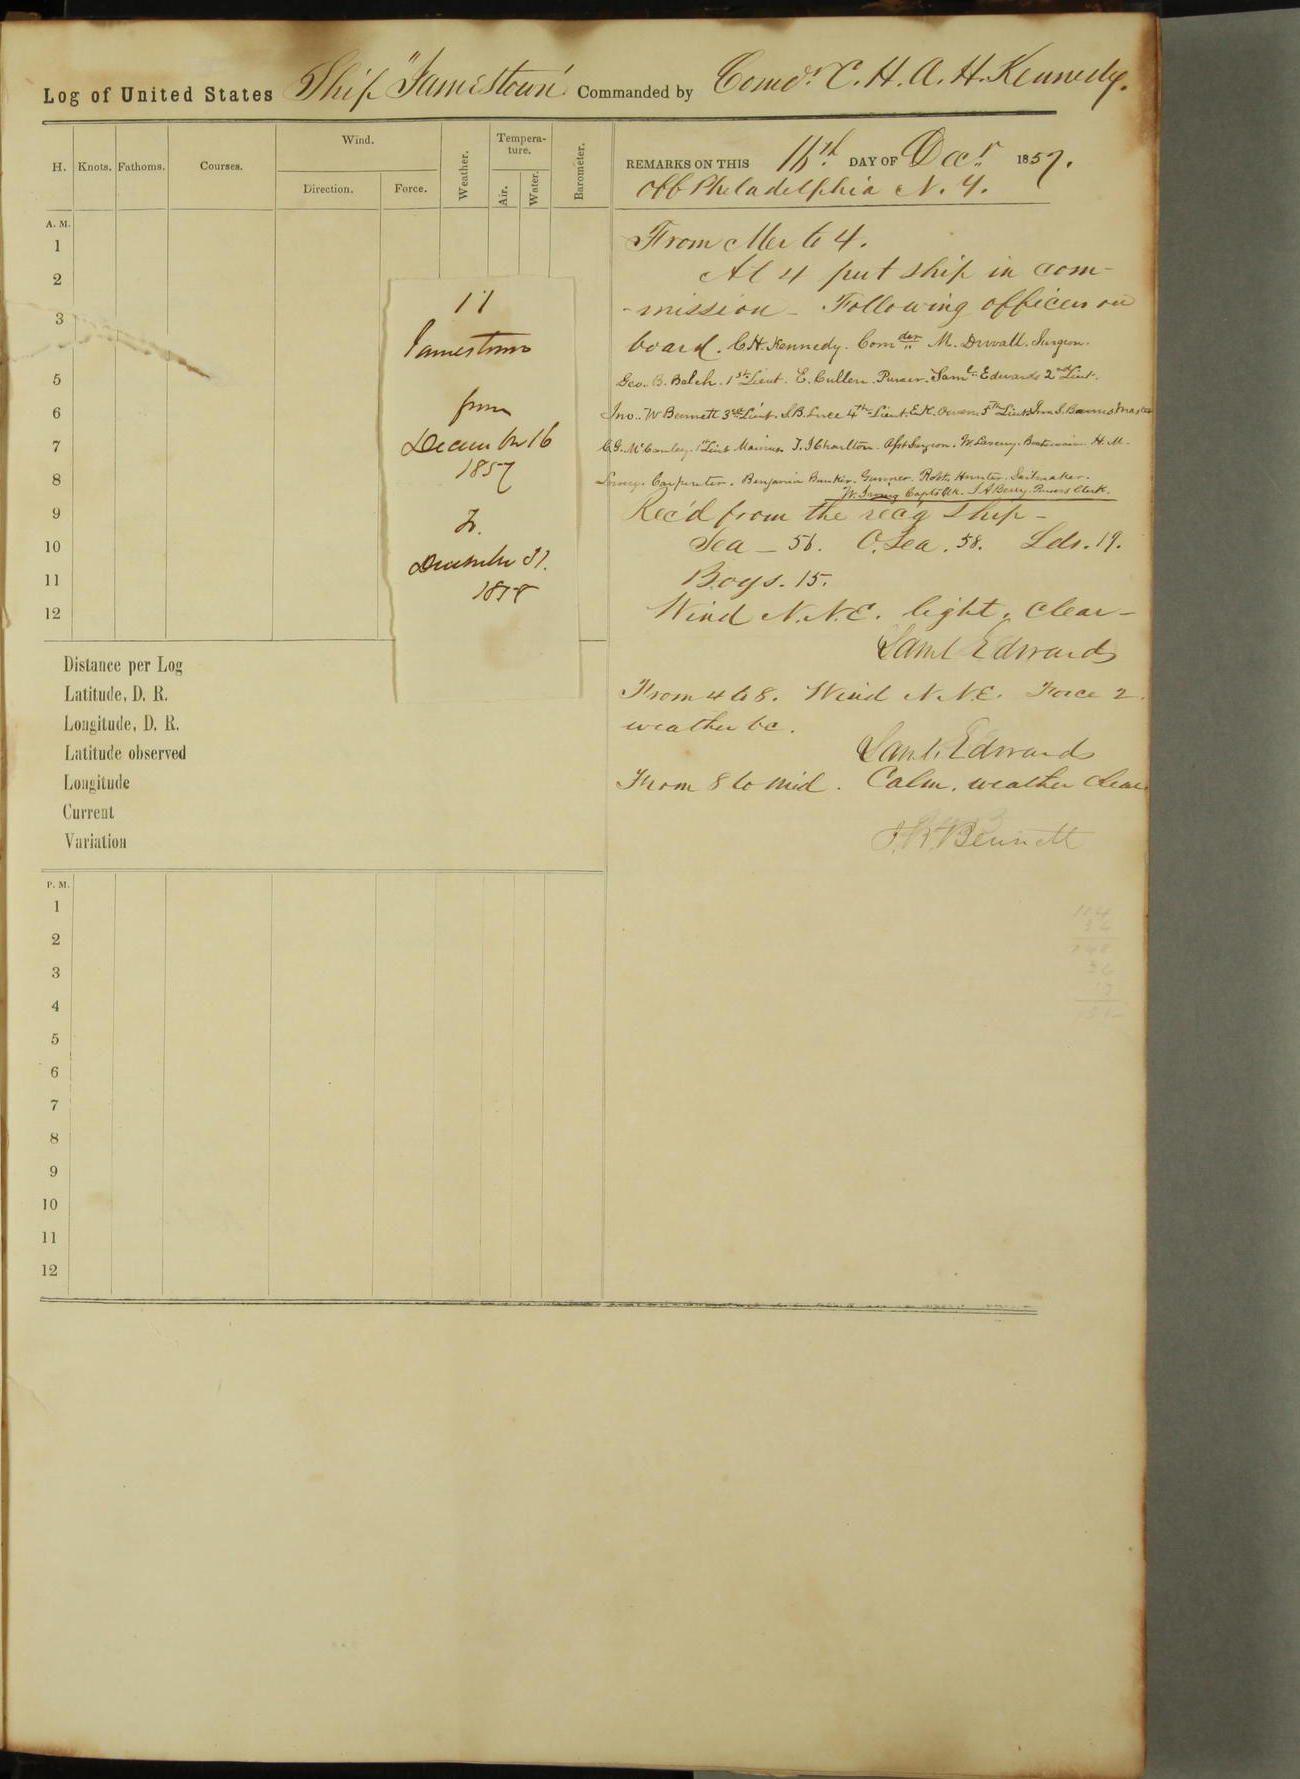 Log of United States Ship "Jamestown" Commanded by Comdr. C. H. A. H. Kennedy.
H. Knots. Fathoms. Courses. Wind. Direction. Force. Weather. Temperature. Air. Water. Barometer.
REMARKS ON THIS 16th. DAY OF Decr. 1857.
off Philadelphia N. Y.
A. M.
1
2
3
5
6
7
8
9
10
11
12
17
Jamestown
from
December 16
1857
to
December 31.
1858
From Mer to 4.
At 4 put ship in com-
-mission - Following officers on
board. C.H. Kennedy. Comder M. Duvall. Surgeon.
Geo. B. Balch. 1st Lieut. E. Cullen. Purser. Saml. Edwards 2nd Lieut.
Jno. W Bennett 3rd Lieut. S.B. Luce 4th Lieut. E.K. Owen. 5th Lieut. Jno. S. Barnes Master
C.G. McCawley. 1st Lieut Marines. T. J Charlton. Asst Surgeon. W. Boatswain. H. M.
Lowry. Carpenter. Benjamin Bunker. Gunner. Robt. Hunter. Sailmaker.
W. Irving Capts Clk. J. A Berry. Pursers Clerk.
Rec'd from the rec'g Ship -
Sea - 56. O. Sea. 58. Lds. 19.
Boys. 15.
Wind N.N.E. light, clear -
Saml Edwards
From 4 to 8. Wind N.N.E. Force 2.
weather bc.
Saml. Edwards
From 8 to mid. Calm. weather clear
J. W. Bennett
Distance per Log
Latitude, D. R.
Longitude, D. R.
Latitude observed
Longitude
Current
Variation
P. M.
1
2
3
4
5
6
7
8
9
10
11
12